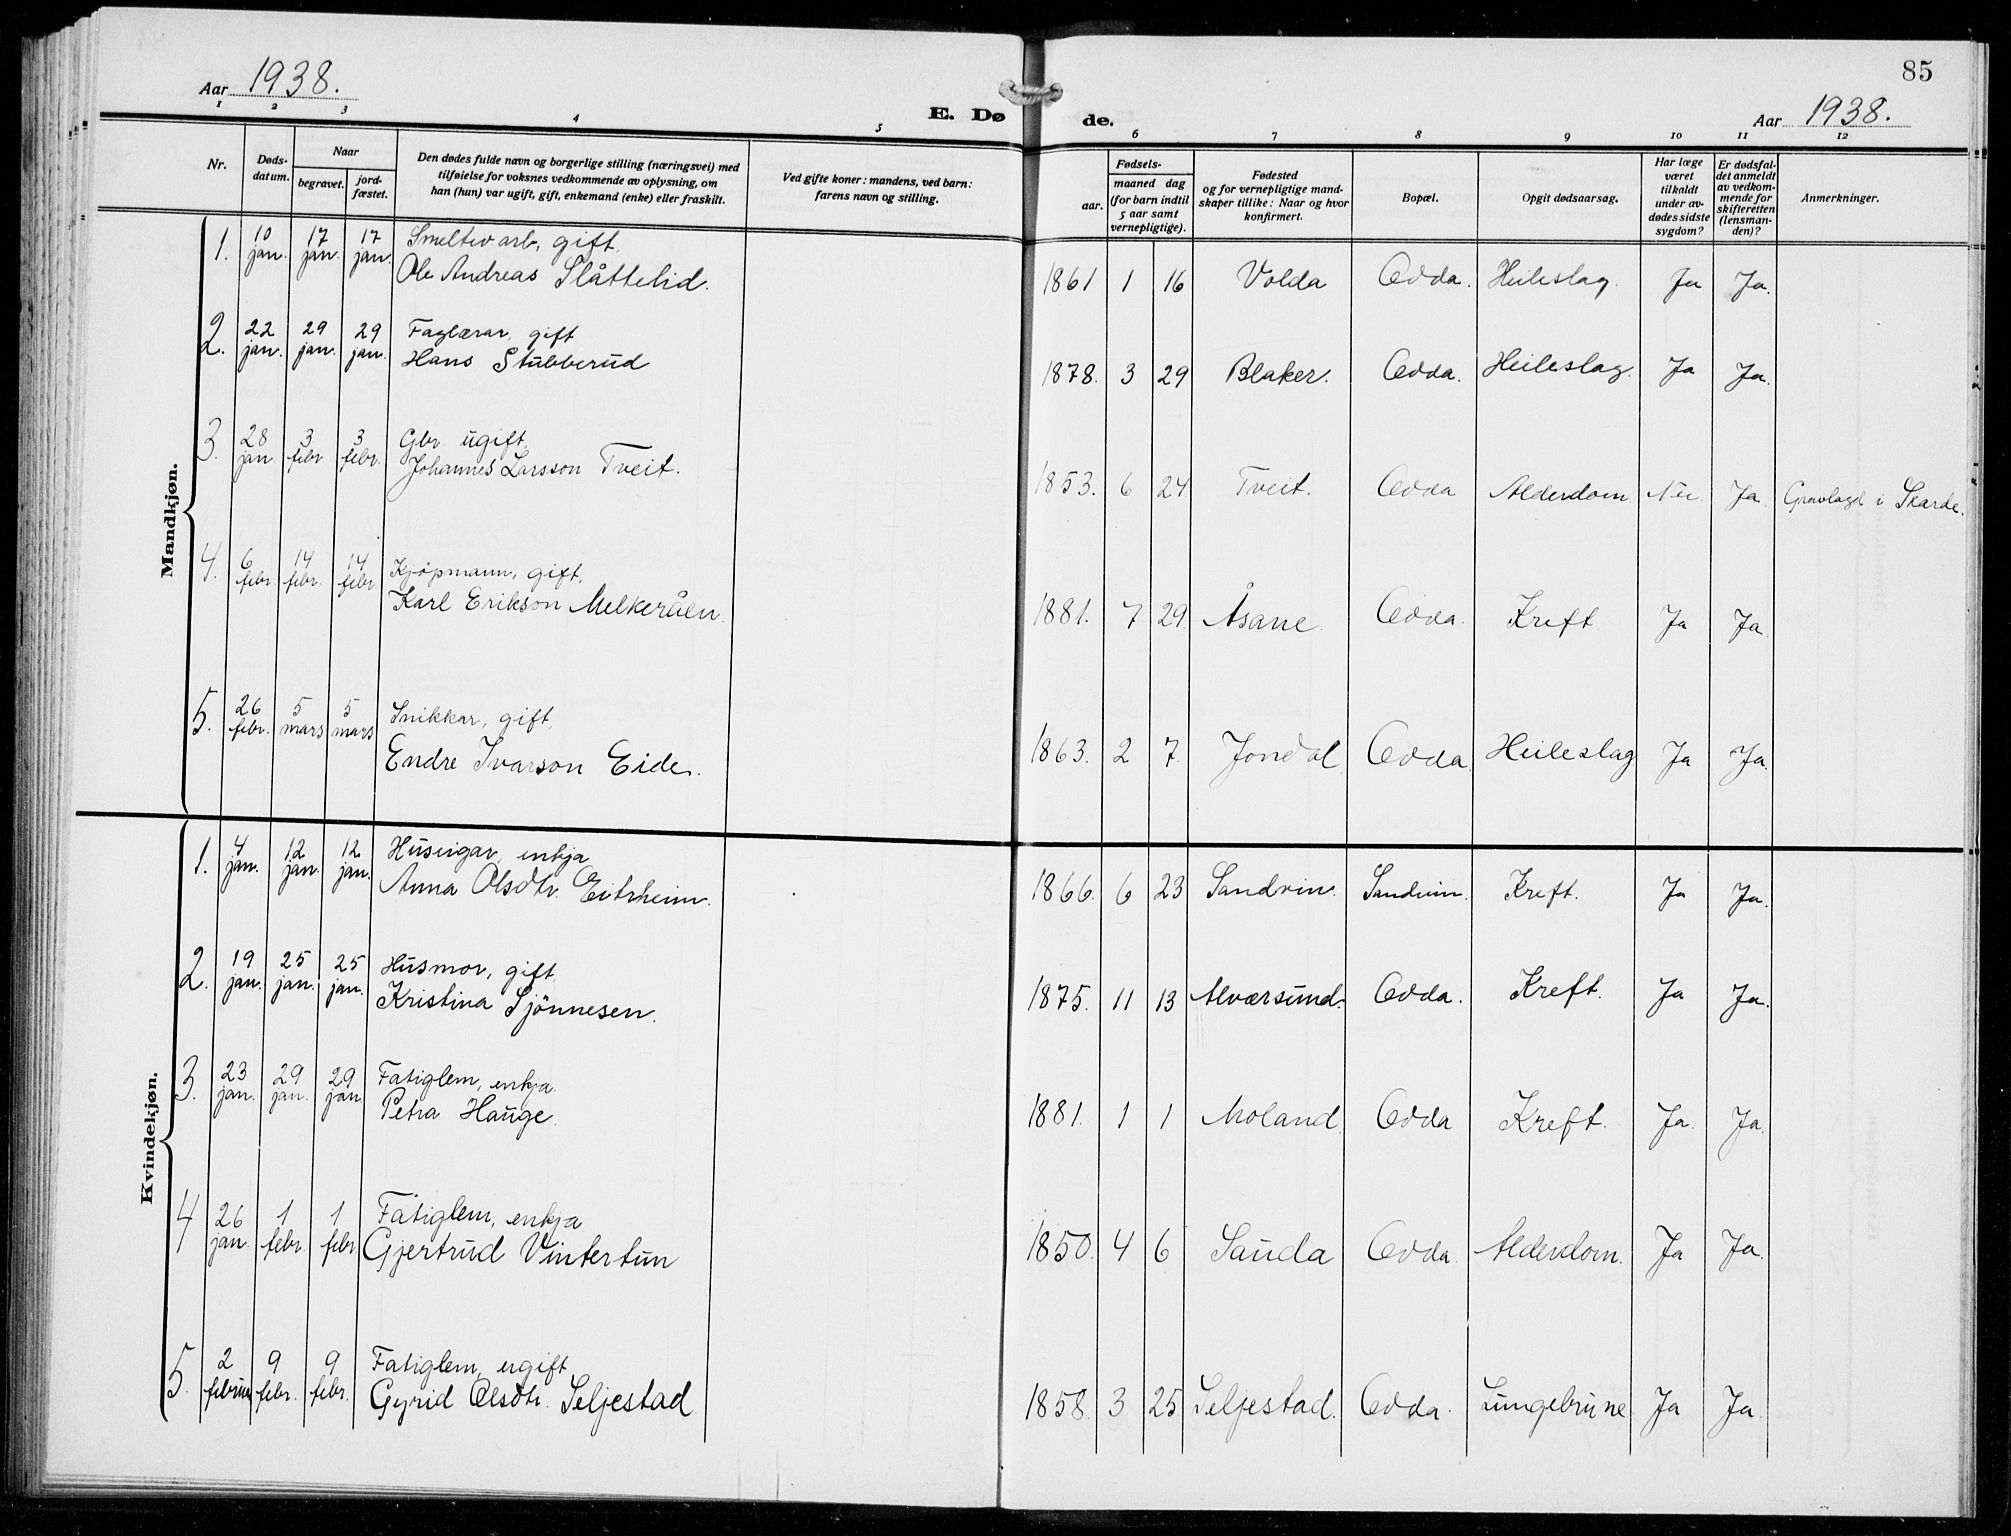 85
Aar 1938.
Aar 1938.
E. Dø
de.
1 2 3 4 5 6 7 8 9 10 11 12
Nr.
Døds-
datum.
Naar
begravet.
jord-
fæstet.
Den dødes fulde navn og borgerlige stilling (næringsvei) med
tilføielse for voksnes vedkommende av oplysning, om
han (hun) var ugift, gift, enkemand (enke) eller fraskilt.
Ved gifte koner: mandens, ved barn:
farens navn og stilling.
Fødsels-
aar.
maaned dag
(for barn indtil
5 aar samt
vernepligtige).
Fødested
og for vernepligtige mand-
skaper tillike: Naar og hvor
konfirmert.
Bopæl.
Opgit dødsaarsag.
Har læge
været
tilkaldt
under av-
dødes sidste
sygdom?
Er dødsfal-
det anmeldt
av vedkom-
mende for
skifteretten
(lensman-
den)?
Anmerkninger.
Mandkjøn.
1. 10 jan. 17 jan. 17 jan. Smeltev.arb, gift
Ole Andreas Slåttelid. 1861 1 16 Volda Odda. Heileslag. Ja Ja.
2. 22 jan. 29 jan. 29 jan. Faglærar, gift
Hans Stubberud 1878. 3 29 Blaker. Odda. Heileslag. Ja Ja.
3. 28 jan. 3 febr 3 febr. Gbr. ugift
Johannes Larsson Tveit. 1853. 6 24 Tveit. Odda Alderdom Nei. Ja Gravlagd i Skarde.
4. 6 febr 14 febr. 14 febr Kjøpmann, gift,
Karl Erikson Melkeråen. 1881. 7 29. Åsane. Odda. Kreft. Ja Ja.
5. 26 febr. 5 mars 5 mars Snikkar, gift,
Endre Ivarson Eide. 1863. 2 7. Jondal Odda. Heileslag Ja Ja.
Kvindekjøn.
1. 4 jan. 12 jan. 12 jan. Huseigar, enkja
Anna Olsdtr. Eitrheim. 1866. 6 23 Sandvin. Sandvin. Kreft. Ja Ja.
2. 19 jan. 25 jan. 25 jan. Husmor, gift
Kristina Sjönnesen. 1875. 11 13 Alværsund. Odda. Kreft. Ja Ja.
3. 23 jan. 29 jan. 29 jan Fatiglem, enkja.
Petra Hauge. 1881. 1 1 Moland. Odda Kreft. Ja. Ja.
4 26 jan. 1 febr. 1 febr Fatiglem, enkja
Gjertrud Vintertun 1850. 4 6 Sauda Odda. Alderdom. Ja Ja.
5. 2 februar 9 febr. 9 febr. Fatiglem, ugift
Gyrid Olsdtr. Seljestad 1858. 3 25 Seljestad. Odda. Lungebrune Ja Ja.